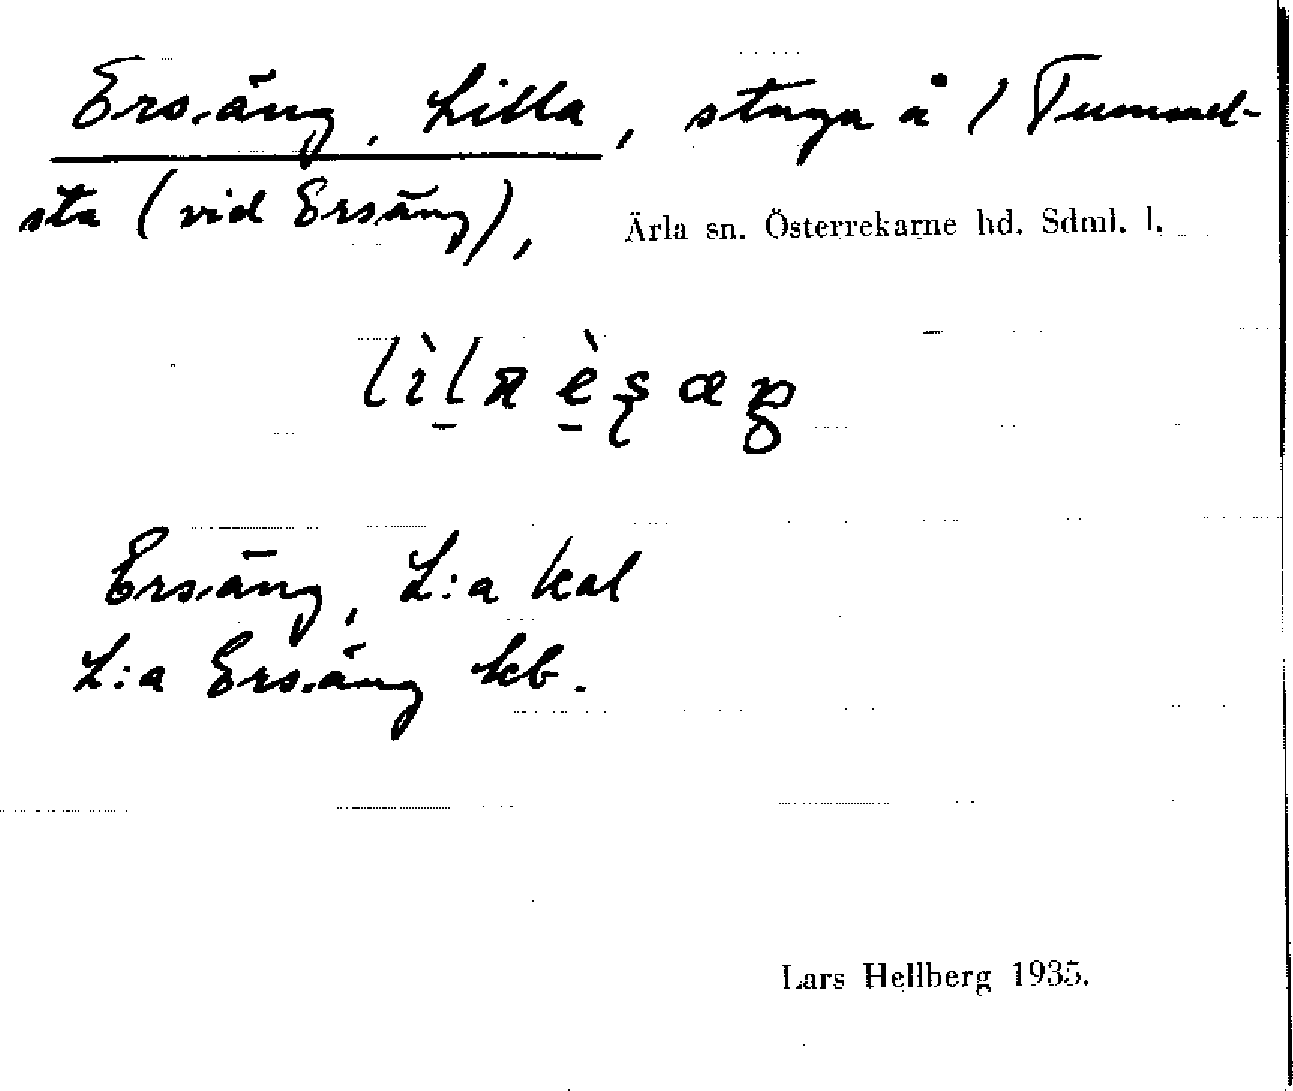 Ersäng, Lilla, stuga å / Tummel-
sta (vid Ersäng),
Ärla sn. Österrekarne hd. Sdml. l.
Ersäng, L:a kal
L:a Ersäng kb.
Lars Hellberg 1935.